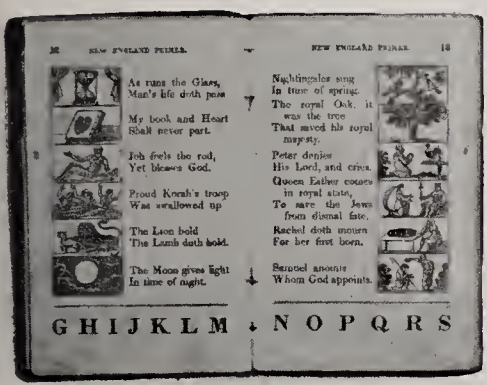 NEW ENGLAND PRIMER.
As runs the Glass,
Man's life doth pass
My book and Heart
Shall never part.
Job feels the rod,
Yet blesses God.
Proud Korah's troop
Was swallowed up
The Lion bold
The Lamb doth hold.
The Moon gives light
In time of night.
G H I J K L M
NEW ENGLAND PRIMER. 13
Nightingales sing
In time of spring.
The royal Oak, it
was the tree
That saved his royal
majesty.
Peter denies
His Lord, and cries.
Queen Esther comes
in royal state,
To save the Jews
from dismal fate.
Rachel doth mourn
For her first born.
Samuel anoints
Whom God appoints.
N O P Q R S